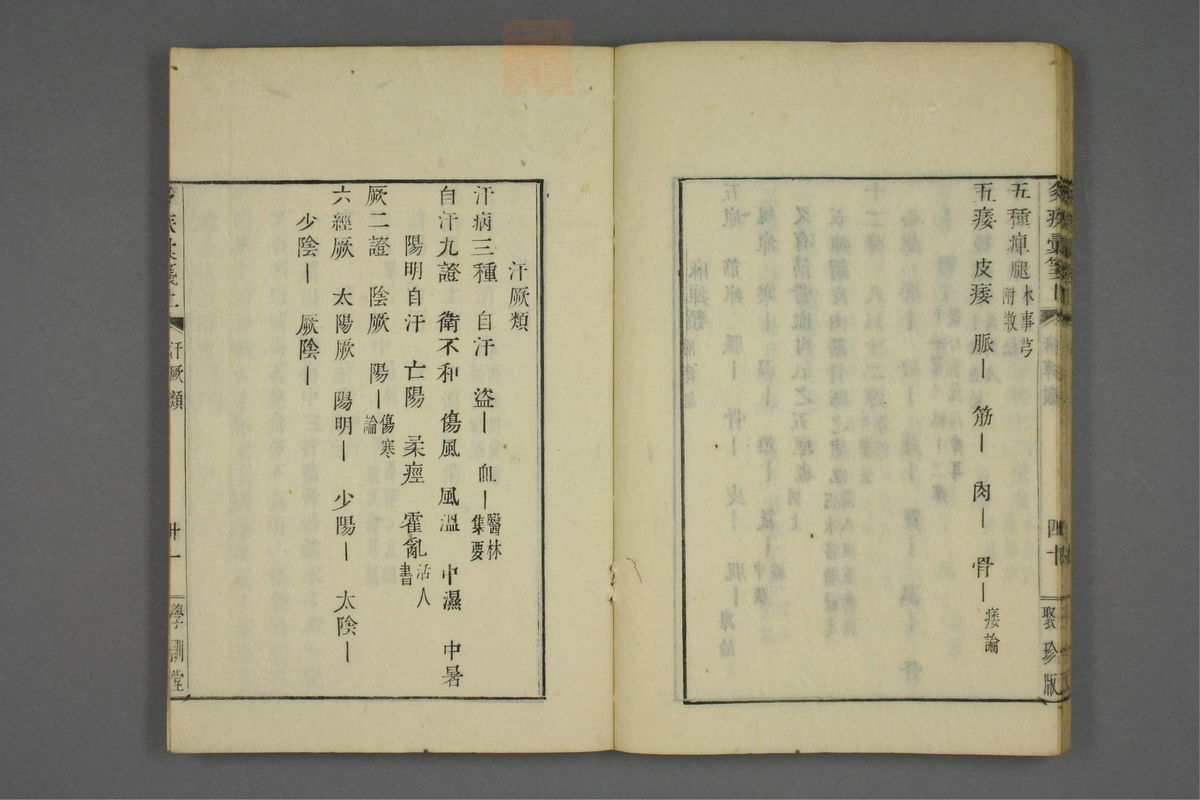 五種痺腿 本事 附散
五痿 皮痿 脈｜ 筋｜ 肉｜ 骨｜ 痿論
四十
聚珍版
汗厥類
汗病三種 自汗 盜｜ 血｜ 醫林集要
自汗九證 衛不和 傷風 風溫 中濕 中暑
陽明自汗 亡陽 柔痙 霍亂 活人書
厥二證 陰厥 陽｜ 傷寒論
六經厥 太陽厥 陽明｜ 少陽｜ 太陰｜
少陰｜ 厥陰｜
汗厥類
廾一
學訓堂